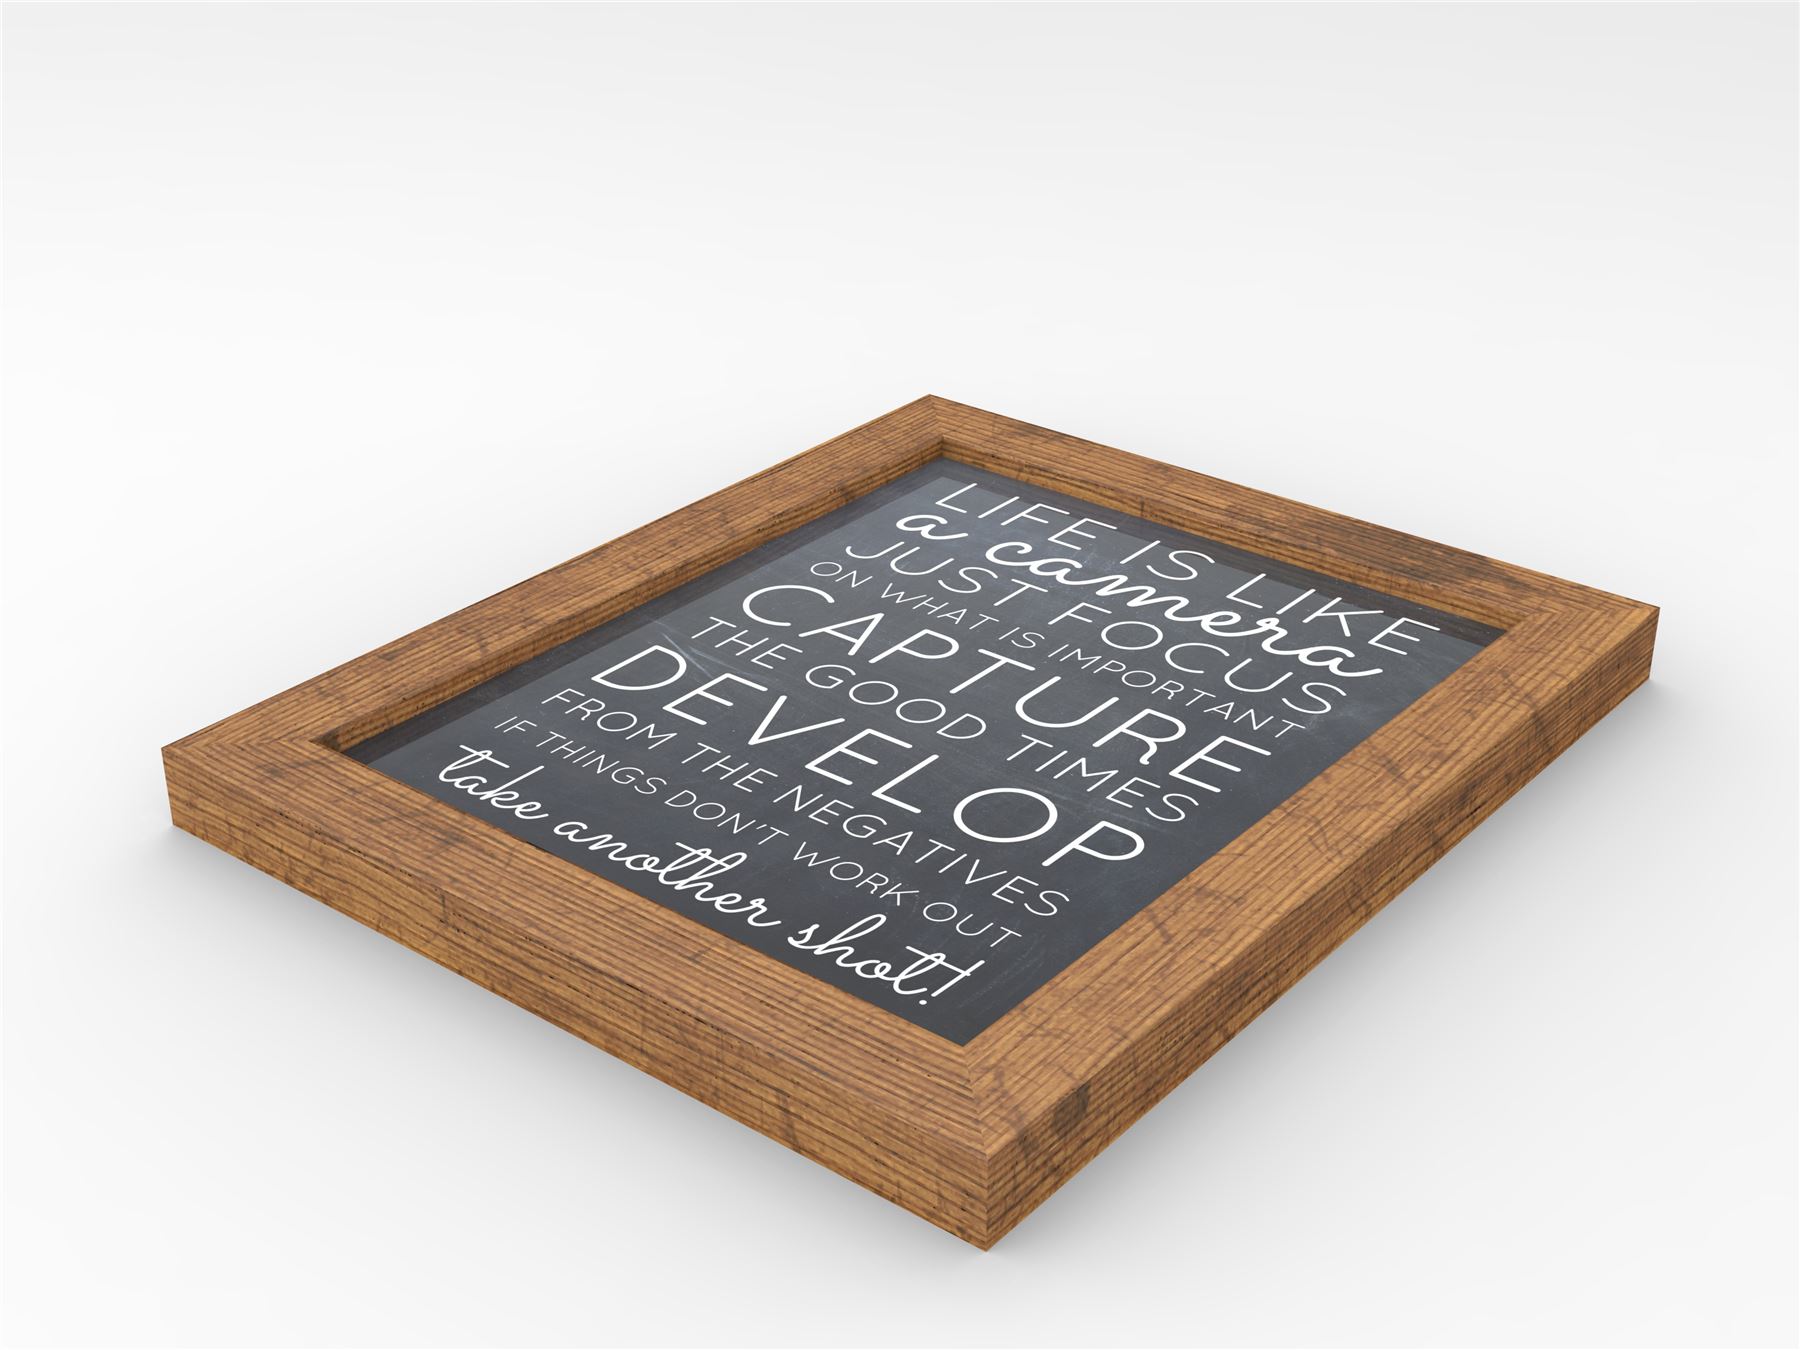 LIFE IS LIKE
a camera
JUST FOCUS
ON WHAT IS IMPORTANT
CAPTURE
THE GOOD TIMES
DEVELOP
FROM THE NEGATIVES
IF THINGS DON'T WORK OUT
take another shot!